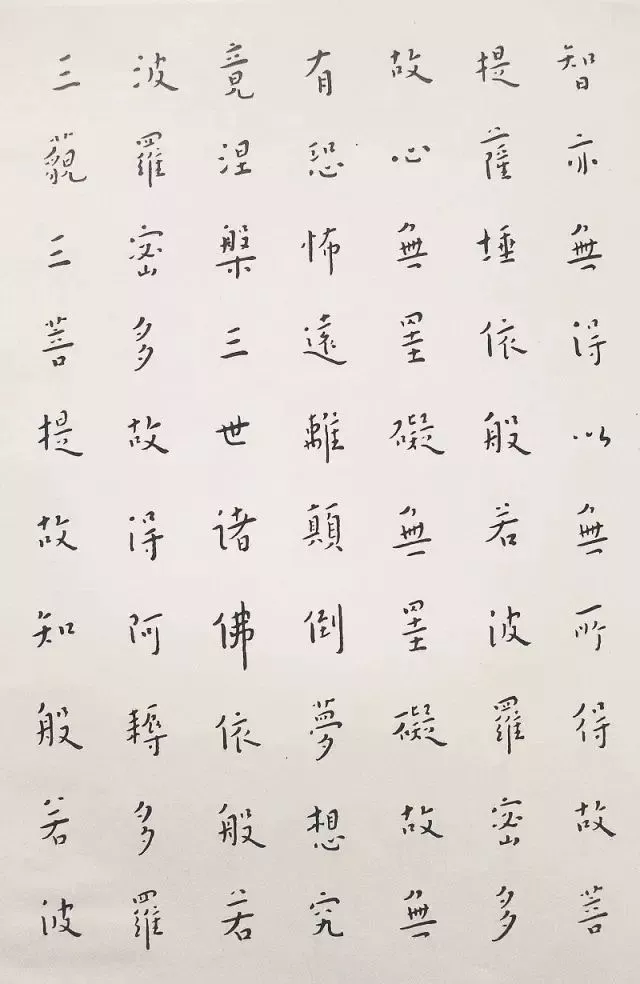 智亦無得以無所得故菩
提薩埵依般若波羅密多
故心無罣礙無罣礙故無
有恐怖遠離顛倒夢想究
竟涅槃三世诸佛依般若
波羅密多故得阿耨多羅
三藐三菩提故知般若波